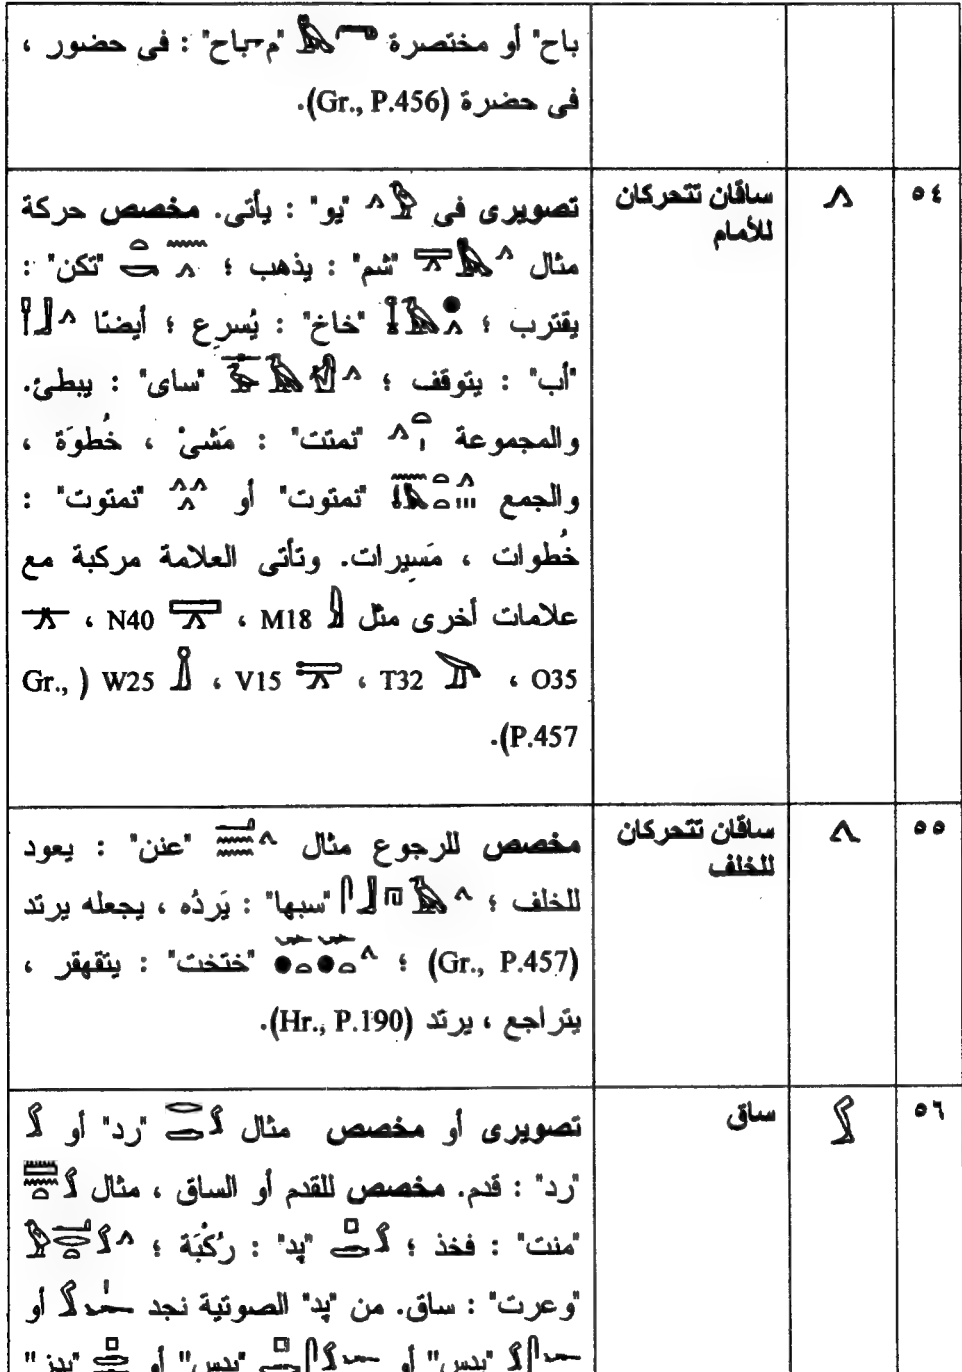 باح" أو مختصرة "م-باح" : فى حضور ،
فى حضرة (Gr., P.456).
٥٤
ساقان تتحركان
للأمام
تصويرى فى "يو" : يأتى. مخصص حركة
مثال "شم" : يذهب ؛ "تكن" :
يقترب ؛ "خاخ" : يُسرِع ؛ أيضنا
"أب" : يتوقف ؛ "ساى" : يبطئ.
والمجموعة "نمتت" : مَشىْ ، خُطوَة ،
والجمع "نمتوت" أو "نمتوت" :
خُطوات ، مَسِيرات. وتأتى العلامة مركبة مع
علامات أخرى مثل M18 ، N40 ،
O35 ، T32 ، V15 ، W25 ( Gr.,
P.457).
٥٥
ساقان تتحركان
للخلف
مخصص للرجوع مثال "عنن" : يعود
للخلف ؛ "سبها" : يَردُه ، يجعله يرتد
(Gr., P.457) ؛ "ختخت" : يتقهقر ،
يتراجع ، يرتد (Hr., P.190).
٥٦
ساق
تصويرى أو مخصص مثال "رد" أو
"رد" : قدم. مخصص للقدم أو الساق ، مثال
"منت" : فخذ ؛ "پد" : رُكْبَة ؛
"وعرت" : ساق. من "پد" الصوتية نجد أو
"پدس" أو "پدس" أو "پدز"